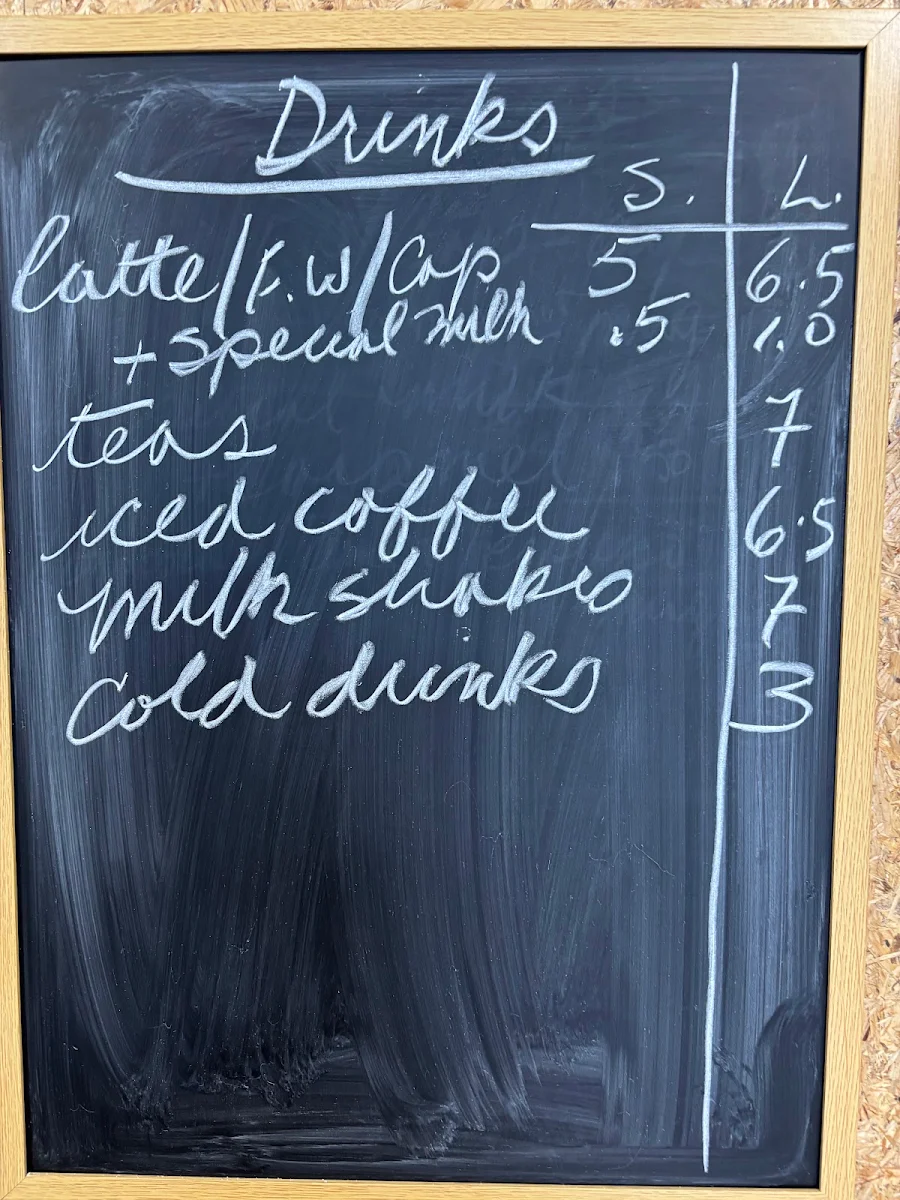 Drinks
S. L.
latte/F.W/Cap 5 6.5
+ special milk .5 1.0
teas 7
iced coffee 6.5
milk shakes 7
Cold drinks 3